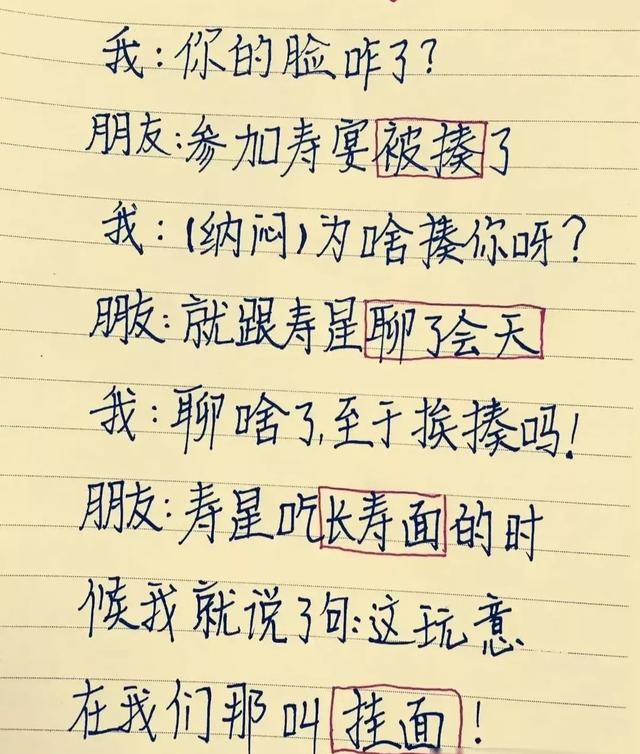 我:你的脸咋了?
朋友:参加寿宴被揍了
我:(纳闷)为啥揍你呀?
朋友:就跟寿星聊了会天
我:聊啥了,至于挨揍吗!
朋友:寿星吃长寿面的时
候我就说了句:这玩意
在我们那叫挂面!